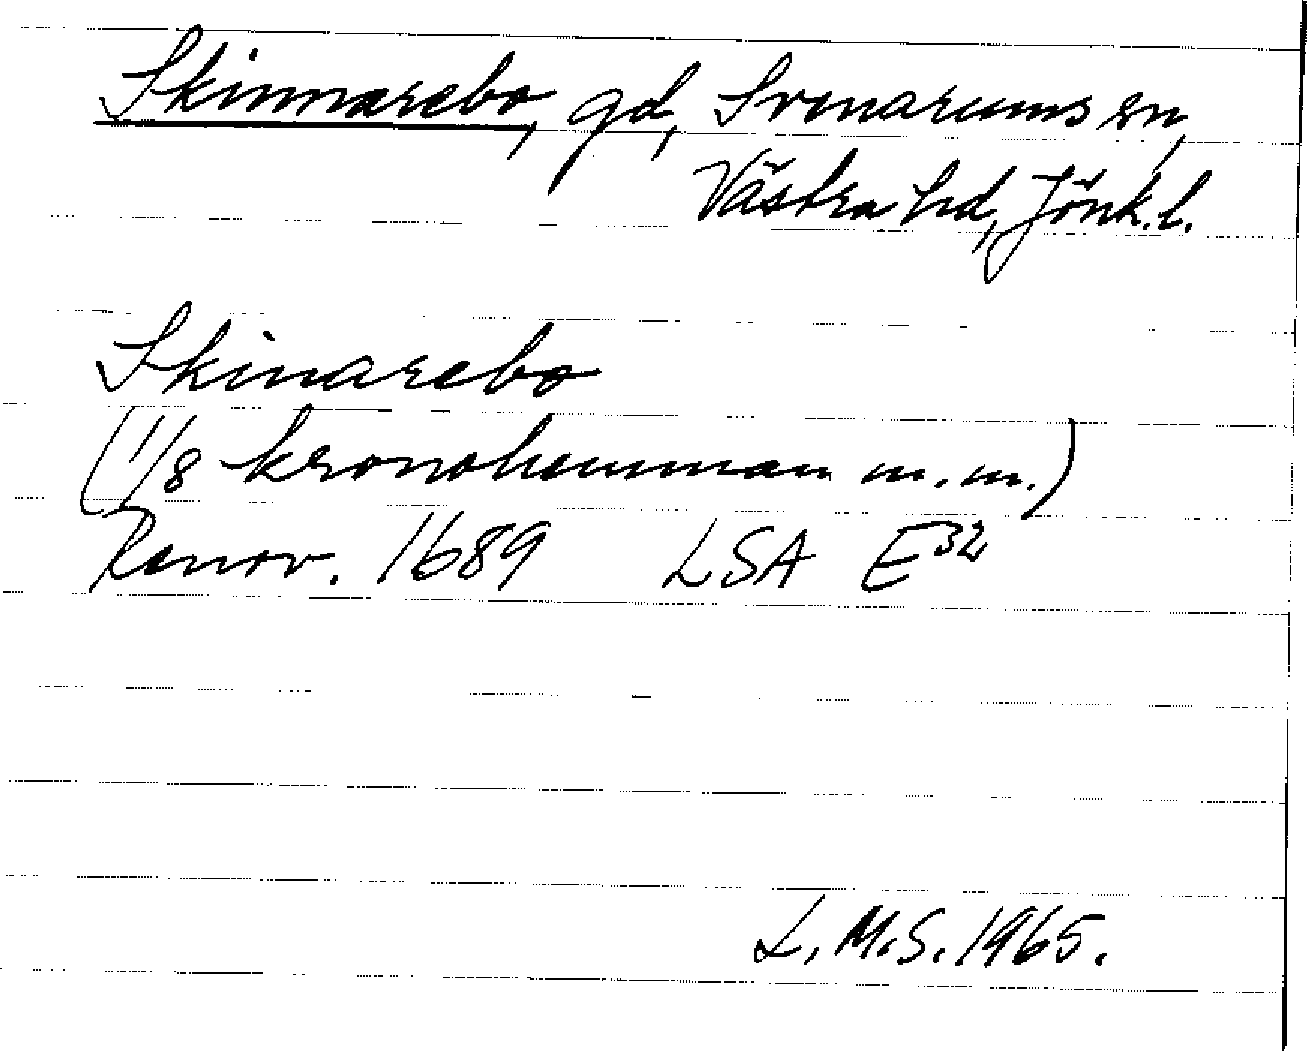 Skinnarebo, gd, Svenarums sn,
Västra hd, Jönk.l.
Skinarebo
(1/8 kronohemman m.m.)
Renov. 1689 LSA E32
L.M.S. 1965.